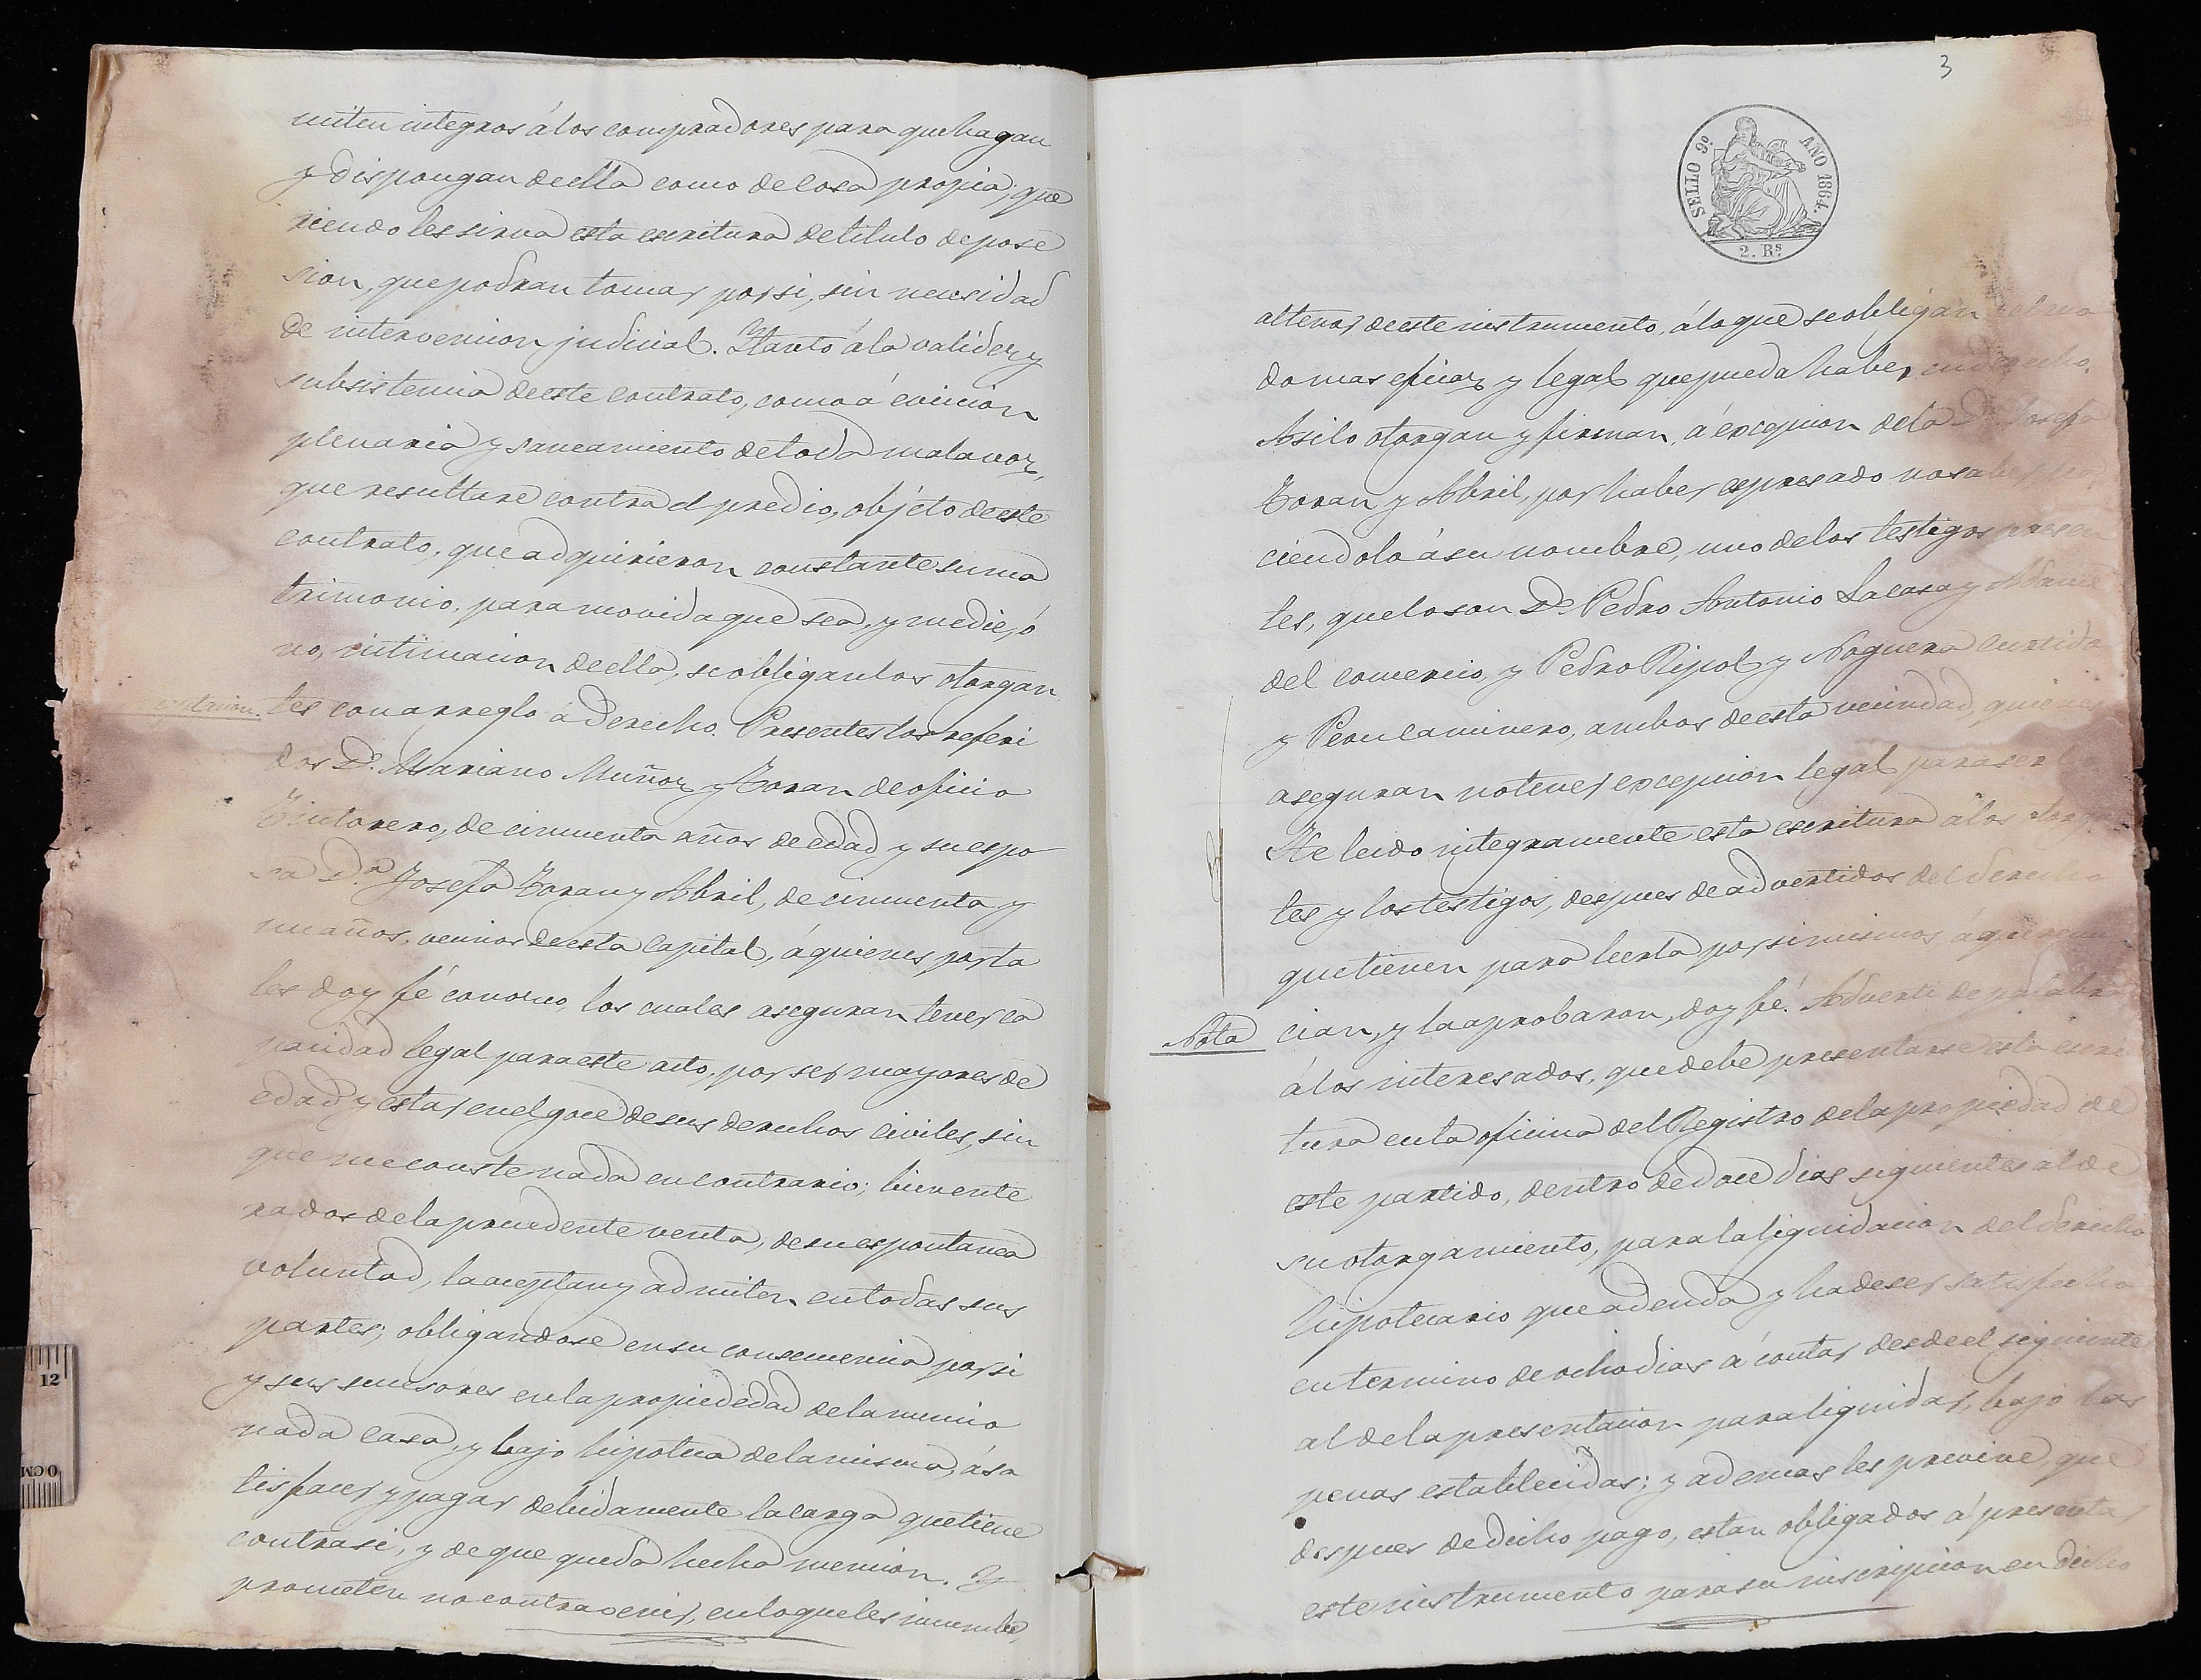 miten integros á los compradores para que hagan
y dispongan de ella como de cosa propia; que
riendo les sirva esta escritura de titulo de pose
sion, que podran tomar por si, sin necesidad
de intervencion judicial. Y tanto á la validez y
subsistencia de este contrato, como á eviccion
plenaria y saneamiento de toda mala voz,
que resultare contra el predio, objeto de este
contrato, que adquirieron constante su ma
trimonio, para movida que sea, y medie, ó
no, intimacion de ella, se obligan los otorgan
tes con arreglo á derecho. Presentes los referi
dos Dn. Mariano Muñoz y Toran de oficio
Tintorero, de cincuenta años de edad y su espo
sa D.ª Josefa Toran y Abril, de cincuenta y
un años, vecinos de esta Capital, á quienes por ta
les doy fé conozco, los cuales aseguran tener ca
pacidad legal para este acto, por ser mayores de
edad y estar en el goce de sus derechos civiles, sin
que me conste nada en contrario; bien ente
rados de la precedente venta, de su espontanea
voluntad, la aceptan y admiten en todas sus
partes; obligandose en su consecuencia por si
y sus sucesores en la propiededad de la mencio
nada casa, y bajo hipoteca de la misma, á sa
tisfacer y pagar debidamente la carga que tiene
contra si, y de que queda hecha mencion. Y
prometen no contravenir, en lo que les incumbe,
3
SELLO 9º AÑO 1864.
2. Rs
al tenor de este instrumento, á lo que se obligan del mo
do mas eficaz y legal que pueda haber en derecho.
Asi lo otorgan y firman, á excepcion de la Dª Josefa
Toran y Abril, por haber espresado no saber, ha
ciendolo á su nombre, uno de los testigos presen
tes, que lo son Dn. Pedro Antonio Lacasa y
del comercio, y Pedro Ripol y Noguera curtidor
y Peon caminero, ambos de esta vecindad, quienes
aseguran no tener excepcion legal para serlo
He leido integramente esta escritura á los otorgan
tes y los testigos, despues de advertidos del derecho
que tienen para leerla por si mismos, á que renun
Nota
cian, y la aprobaron, doy fé. Adverti de palabra
á los interesados, que debe presentarse esta escri
tura en la oficina del Registro de la propiedad de
este partido, dentro de doce dias siguientes al de
su otorgamiento, para la liquidacion del derecho
hipotecario que adeuda y ha de ser satisfecho
en termino de ocho dias á contar desde el siguiente
al de la presentacion para liquidar, bajo las
penas establecidas; y ademas les previne, que
despues de dicho pago, estan obligados á presentar
este instrumento para su inscripcion en dicho